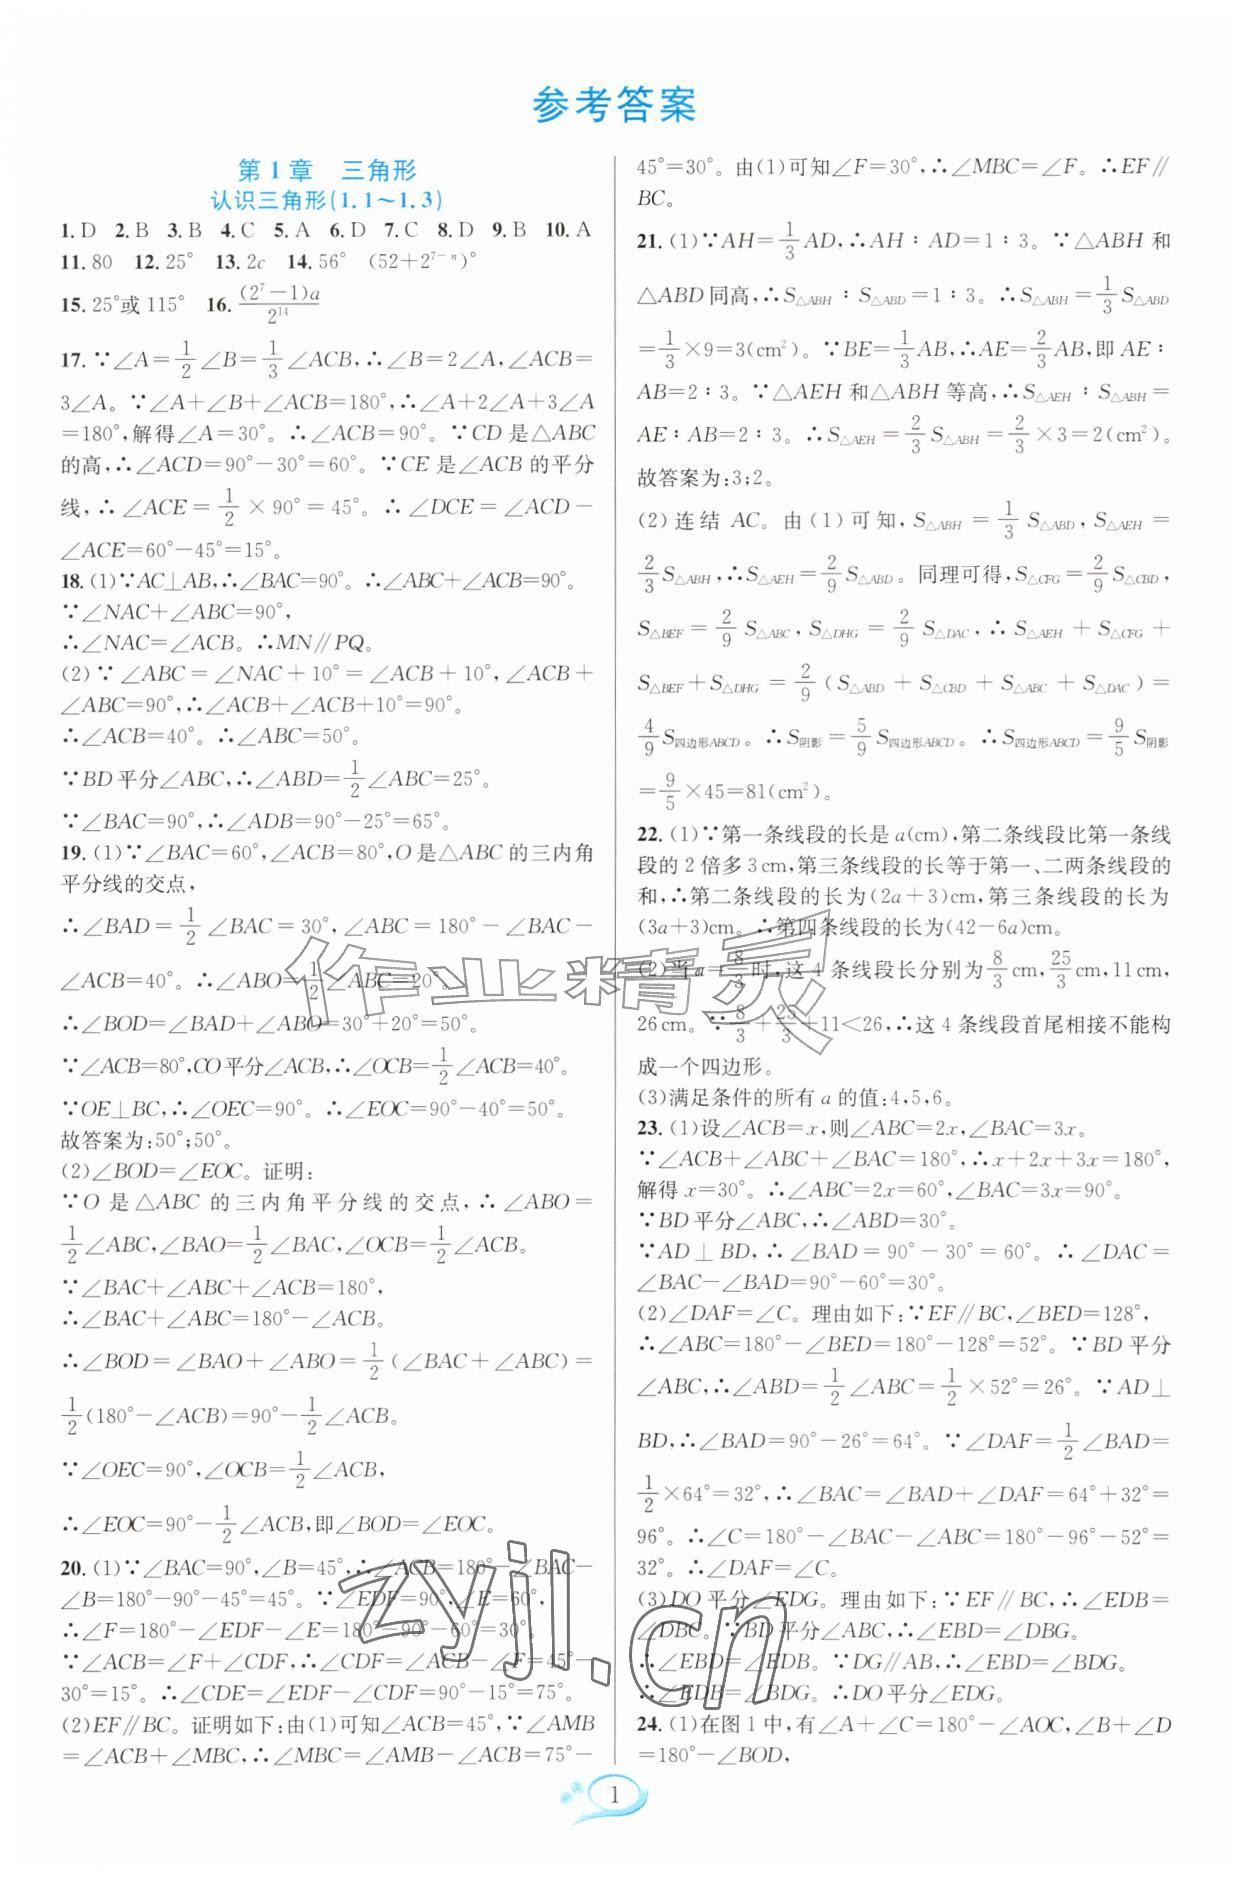 参考答案
第1章 三角形
认识三角形(1.1～1.3)
1.D 2.B 3.B 4.C 5.A 6.D 7.C 8.D 9.B 10.A
11.80 12.25° 13.2c 14.56° (52+2^{7-n})°
15.25°或115° 16.\frac{(2^7-1)a}{2^{14}}
17.∵∠A=\frac{1}{2}∠B=\frac{1}{3}∠ACB,∴∠B=2∠A,∠ACB=
3∠A。∵∠A+∠B+∠ACB=180°,∴∠A+2∠A+3∠A
=180°,解得∠A=30°。∴∠ACB=90°。∵CD是△ABC
的高,∴∠ACD=90°-30°=60°。∵CE是∠ACB的平分
线,∴∠ACE=\frac{1}{2}×90°=45°。∴∠DCE=∠ACD-
∠ACE=60°-45°=15°。
18.(1)∵AC⊥AB,∴∠BAC=90°。∴∠ABC+∠ACB=90°。
∵∠NAC+∠ABC=90°,
∴∠NAC=∠ACB。∴MN∥PQ。
(2)∵∠ABC=∠NAC+10°=∠ACB+10°,∠ACB+
∠ABC=90°,∴∠ACB+∠ACB+10°=90°。
∴∠ACB=40°。∴∠ABC=50°。
∵BD平分∠ABC,∴∠ABD=\frac{1}{2}∠ABC=25°。
∵∠BAC=90°,∴∠ADB=90°-25°=65°。
19.(1)∵∠BAC=60°,∠ACB=80°,O是△ABC的三内角
平分线的交点,
∴∠BAD=\frac{1}{2}∠BAC=30°,∠ABC=180°-∠BAC-
∠ACB=40°。∴∠ABO=\frac{1}{2}∠ABC=20°。
∴∠BOD=∠BAD+∠ABO=30°+20°=50°。
∵∠ACB=80°,CO平分∠ACB,∴∠OCB=\frac{1}{2}∠ACB=40°。
∵OE⊥BC,∴∠OEC=90°。∴∠EOC=90°-40°=50°。
故答案为:50°;50°。
(2)∠BOD=∠EOC。证明:
∵O是△ABC的三内角平分线的交点,∴∠ABO=
\frac{1}{2}∠ABC,∠BAO=\frac{1}{2}∠BAC,∠OCB=\frac{1}{2}∠ACB。
∵∠BAC+∠ABC+∠ACB=180°,
∴∠BAC+∠ABC=180°-∠ACB。
∴∠BOD=∠BAO+∠ABO=\frac{1}{2}(∠BAC+∠ABC)=
\frac{1}{2}(180°-∠ACB)=90°-\frac{1}{2}∠ACB。
∵∠OEC=90°,∠OCB=\frac{1}{2}∠ACB,
∴∠EOC=90°-\frac{1}{2}∠ACB,即∠BOD=∠EOC。
20.(1)∵∠BAC=90°,∠B=45°,∴∠ACB=180°-∠BAC-
∠B=180°-90°-45°=45°。∵∠EDF=90°,∠E=60°,
∴∠F=180°-∠EDF-∠E=180°-90°-60°=30°。
∵∠ACB=∠F+∠CDF,∴∠CDF=∠ACB-∠F=45°-
30°=15°。∴∠CDE=∠EDF-∠CDF=90°-15°=75°。
(2)EF∥BC。证明如下:由(1)可知∠ACB=45°,∵∠AMB
=∠ACB+∠MBC,∴∠MBC=∠AMB-∠ACB=75°-
45°=30°。由(1)可知∠F=30°,∴∠MBC=∠F。∴EF∥
BC。
21.(1)∵AH=\frac{1}{3}AD,∴AH∶AD=1∶3。∵△ABH和
△ABD同高,∴S_{△ABH}∶S_{△ABD}=1∶3。∴S_{△ABH}=\frac{1}{3}S_{△ABD}
=\frac{1}{3}×9=3(cm²)。∵BE=\frac{1}{3}AB,∴AE=\frac{2}{3}AB,即AE∶
AB=2∶3。∵△AEH和△ABH等高,∴S_{△AEH}∶S_{△ABH}=
AE∶AB=2∶3。∴S_{△AEH}=\frac{2}{3}S_{△ABH}=\frac{2}{3}×3=2(cm²)。
故答案为:3;2。
(2)连结AC。由(1)可知,S_{△ABH}=\frac{1}{3}S_{△ABD},S_{△AEH}=
\frac{2}{3}S_{△ABH},∴S_{△AEH}=\frac{2}{9}S_{△ABD}。同理可得,S_{△CFG}=\frac{2}{9}S_{△CBD},
S_{△BEF}=\frac{2}{9}S_{△ABC},S_{△DHG}=\frac{2}{9}S_{△DAC},∴S_{△AEH}+S_{△CFG}+
S_{△BEF}+S_{△DHG}=\frac{2}{9}(S_{△ABD}+S_{△CBD}+S_{△ABC}+S_{△DAC})=
\frac{4}{9}S_{四边形ABCD}。∴S_{阴影}=\frac{5}{9}S_{四边形ABCD}。∴S_{四边形ABCD}=\frac{9}{5}S_{阴影}
=\frac{9}{5}×45=81(cm²)。
22.(1)∵第一条线段的长是a(cm),第二条线段比第一条线
段的2倍多3cm,第三条线段的长等于第一、二两条线段的
和,∴第二条线段的长为(2a+3)cm,第三条线段的长为
(3a+3)cm。∴第四条线段的长为(42-6a)cm。
(2)当a=\frac{8}{3}时,这4条线段长分别为\frac{8}{3}cm,\frac{25}{3}cm,11cm,
26cm。∵\frac{8}{3}+\frac{25}{3}+11<26,∴这4条线段首尾相接不能构
成一个四边形。
(3)满足条件的所有a的值:4,5,6。
23.(1)设∠ACB=x,则∠ABC=2x,∠BAC=3x。
∵∠ACB+∠ABC+∠BAC=180°,∴x+2x+3x=180°,
解得x=30°。∴∠ABC=2x=60°,∠BAC=3x=90°。
∵BD平分∠ABC,∴∠ABD=30°。
∵AD⊥BD,∴∠BAD=90°-30°=60°。∴∠DAC=
∠BAC-∠BAD=90°-60°=30°。
(2)∠DAF=∠C。理由如下:∵EF∥BC,∠BED=128°,
∴∠ABC=180°-∠BED=180°-128°=52°。∵BD平分
∠ABC,∴∠ABD=\frac{1}{2}∠ABC=\frac{1}{2}×52°=26°。∵AD⊥
BD,∴∠BAD=90°-26°=64°。∵∠DAF=\frac{1}{2}∠BAD=
\frac{1}{2}×64°=32°,∴∠BAC=∠BAD+∠DAF=64°+32°=
96°。∴∠C=180°-∠BAC-∠ABC=180°-96°-52°=
32°。∴∠DAF=∠C。
(3)DO平分∠EDG。理由如下:∵EF∥BC,∴∠EDB=
∠DBC。∵BD平分∠ABC,∴∠EBD=∠DBG。
∴∠EBD=∠EDB。∵DG∥AB,∴∠EBD=∠BDG。
∴∠EDB=∠BDG。∴DO平分∠EDG。
24.(1)在图1中,有∠A+∠C=180°-∠AOC,∠B+∠D
=180°-∠BOD,
1
作业精灵
zyjl.cn